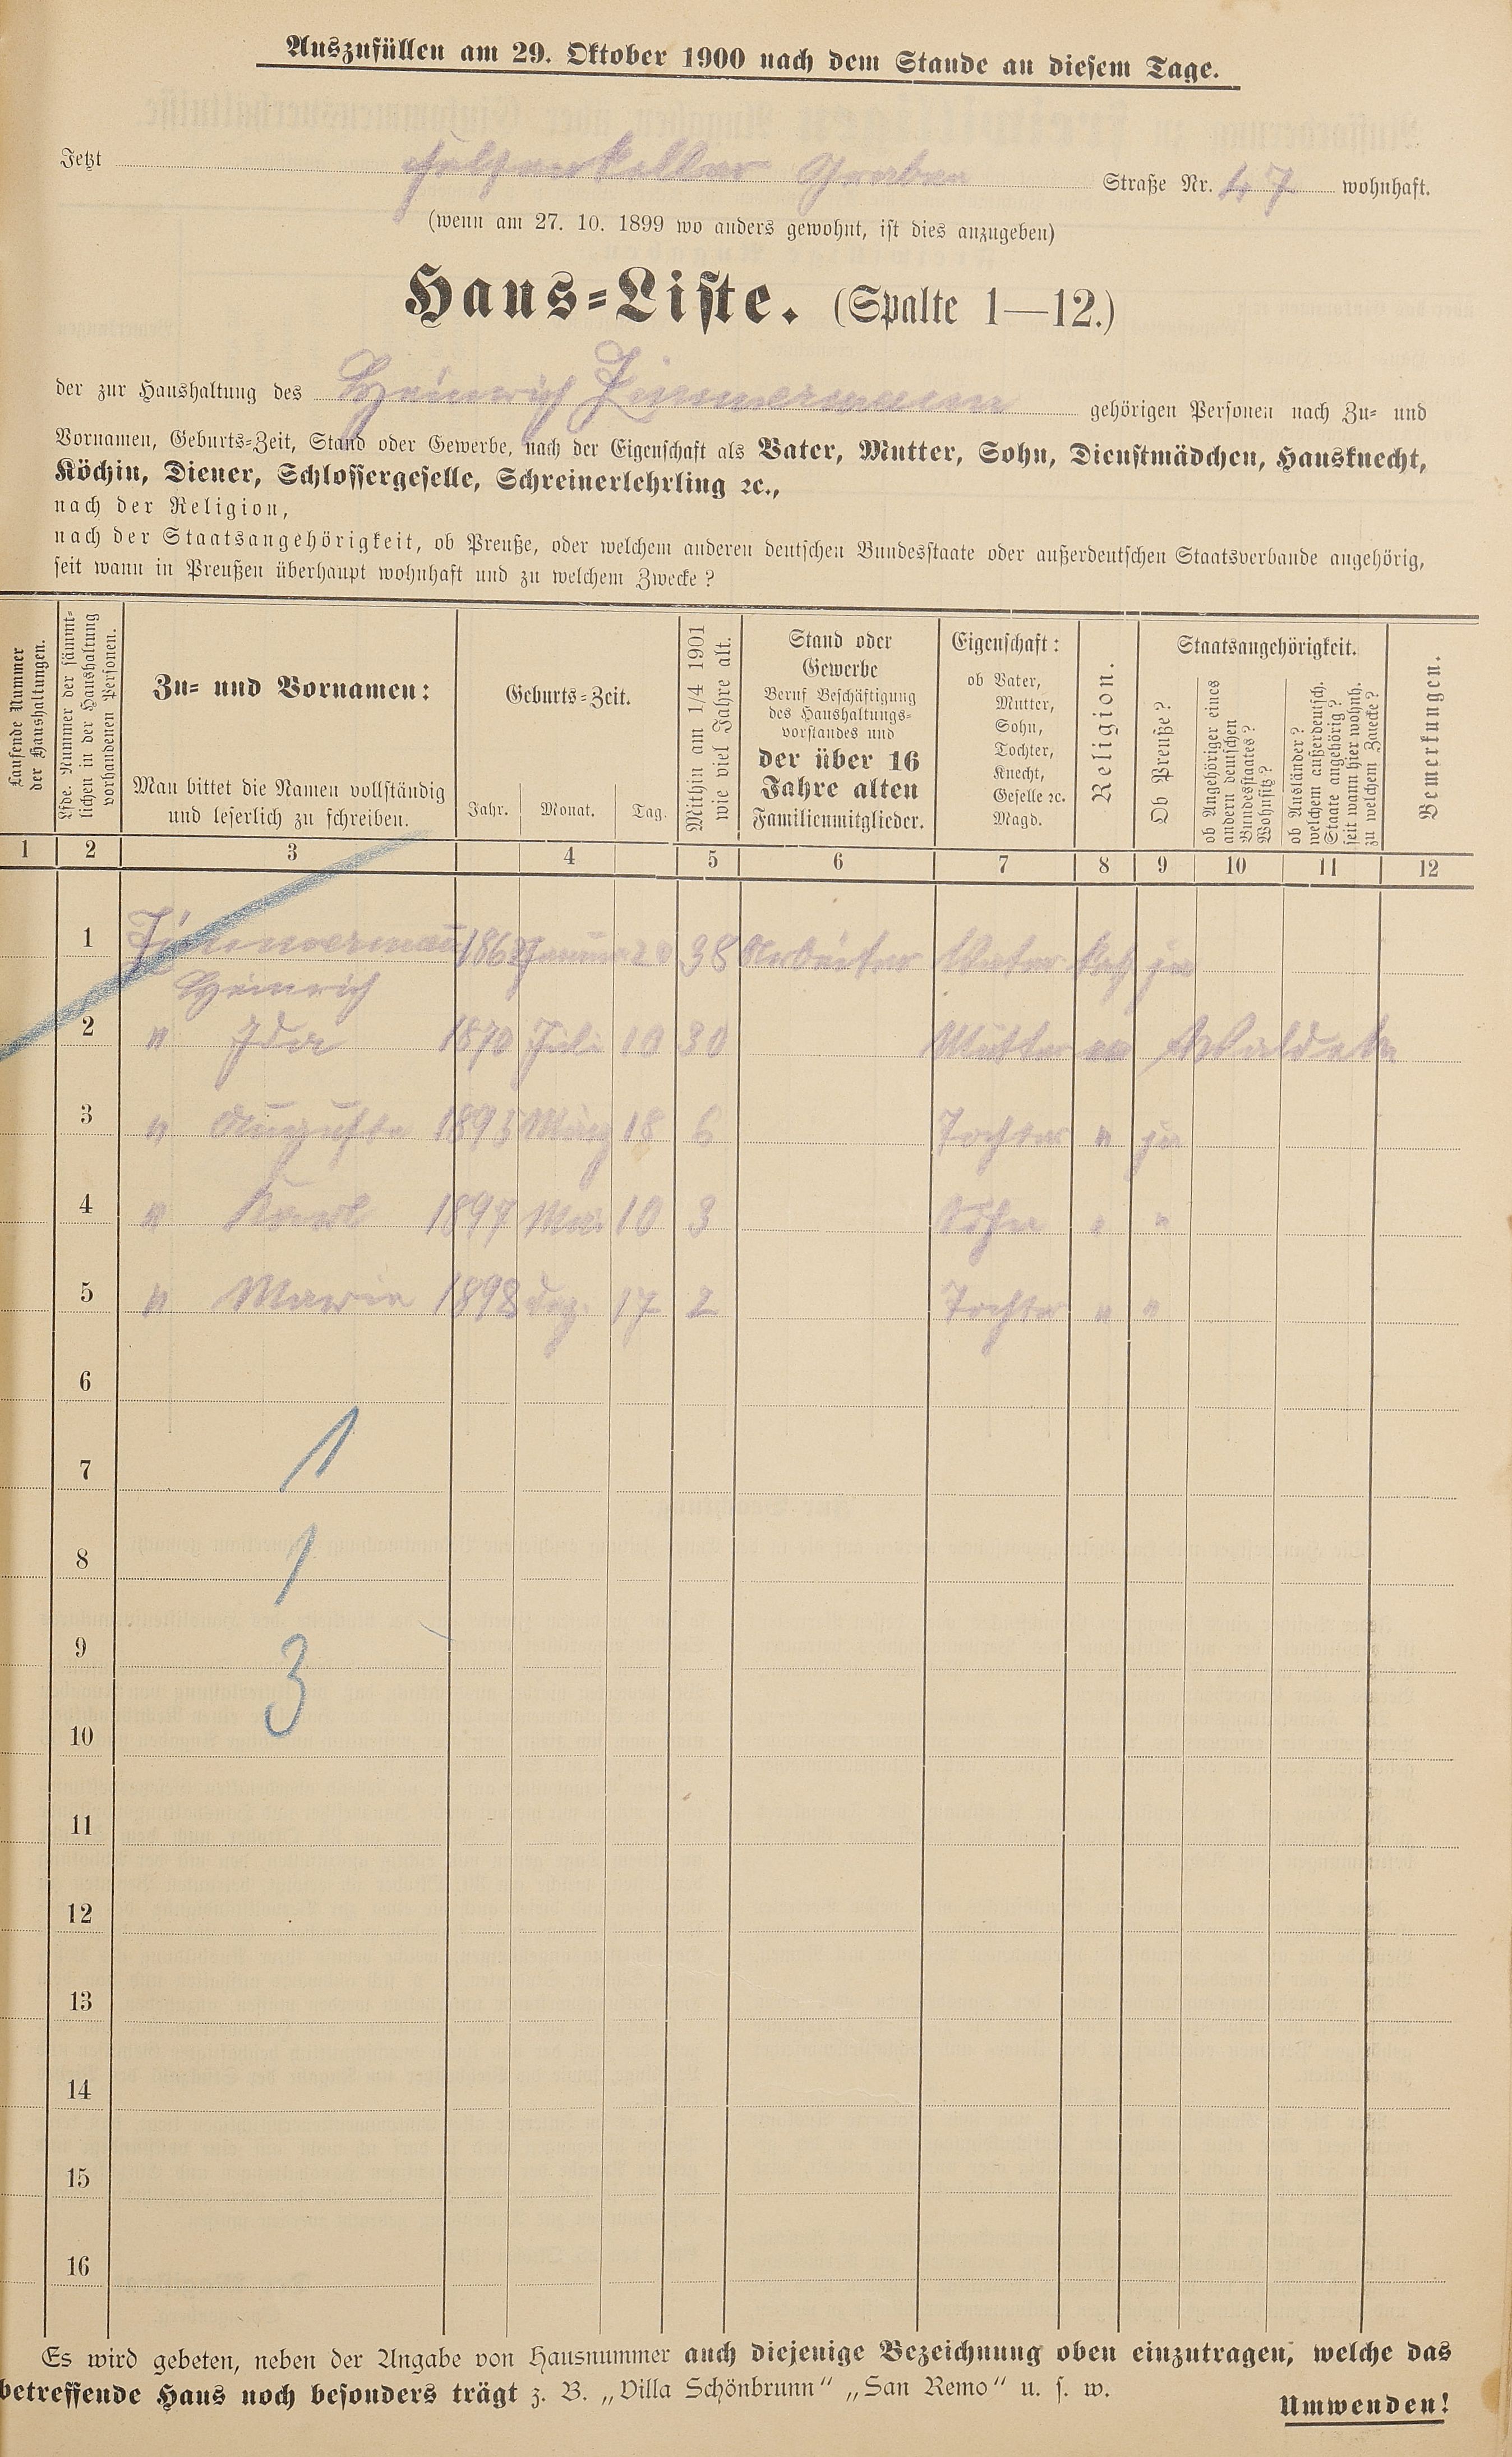 Auszufüllen am 29. Oktober 1900 nach dem Stande an diesem Tage.
Jetzt Felsenkeller Graben Straße Nr. 47 wohnhaft.
(wenn am 27. 10. 1899 wo anders gewohnt, ist dies anzugeben)
Haus-Liste. (Spalte 1—12.)
der zur Haushaltung des Heinrich Zimmermann gehörigen Personen nach Zu- und
Vornamen, Geburts-Zeit, Stand oder Gewerbe, nach der Eigenschaft als Vater, Mutter, Sohn, Dienstmädchen, Hausknecht,
Köchin, Diener, Schlossergeselle, Schreinerlehrling ꝛc.,
nach der Religion,
nach der Staatsangehörigkeit, ob Preuße, oder welchem anderen deutschen Bundesstaate oder außerdeutschen Staatsverbande angehörig,
seit wann in Preußen überhaupt wohnhaft und zu welchem Zwecke?
Laufende Nummer
der Haushaltungen.
Lfde. Nummer der sämmt-
lichen in der Haushaltung
vorhandenen Personen.
Zu- und Vornamen:
Man bittet die Namen vollständig
und leserlich zu schreiben.
Geburts-Zeit.
Jahr. Monat. Tag.
Mithin am 1/4 1901
wie viel Jahre alt.
Stand oder
Gewerbe
Beruf Beschäftigung
des Haushaltungs-
vorstandes und
der über 16
Jahre alten
Familienmitglieder.
Eigenschaft:
ob Vater,
Mutter,
Sohn,
Tochter,
Knecht,
Geselle ꝛc.
Magd.
Religion.
Staatsangehörigkeit.
Ob Preuße?
ob Angehöriger eines
andern deutschen
Bundesstaates?
Wohnsitz?
ob Ausländer?
welchem außerdeutsch.
Staate angehörig?
seit wann hier wohnh.
zu welchem Zwecke?
Bemerkungen.
1 2 3 4 5 6 7 8 9 10 11 12
1 Zimmermann 1862 Januar 38 Arbeiter Vater kath ja
Heinrich
2 " Ida 1870 Juli 10 30 Mutter Waldeck
3 " Auguste 1895 März 18 6 Tochter " ja
4 " Karl 1897 Mai 10 3 Sohn " "
5 " Marie 1898 Dez. 17 2 Tochter " "
6
7 1
8 1
9 3
10
11
12
13
14
15
16
Es wird gebeten, neben der Angabe von Hausnummer auch diejenige Bezeichnung oben einzutragen, welche das
betreffende Haus noch besonders trägt z. B. „Villa Schönbrunn“ „San Remo“ u. s. w.
Umwenden!